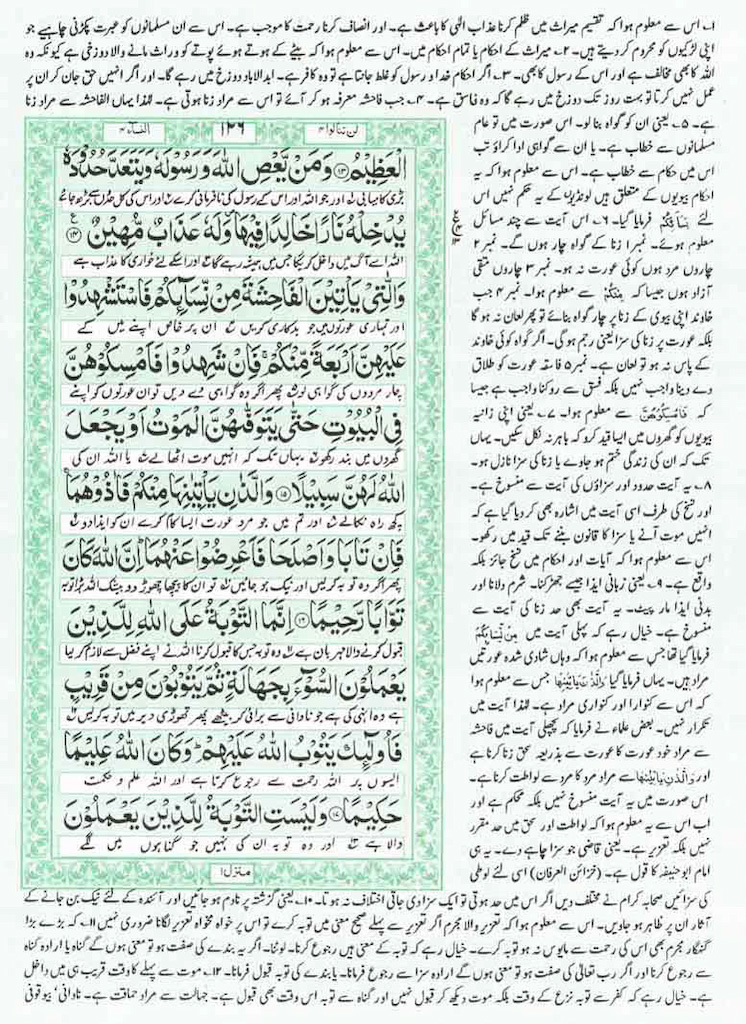 ۱۔ اس سے معلوم ہوا کہ تقسیم میراث میں ظلم کرنا عذاب الٰہی کا باعث ہے۔ اور انصاف کرنا رحمت کا موجب ہے۔ اس سے ان مسلمانوں کو عبرت پکڑنی چاہیے جو
اپنی لڑکیوں کو محروم کر دیتے ہیں۔ ۲۔ میراث کے احکام یا تمام احکام میں۔ اس سے معلوم ہوا کہ بیٹے کے ہوتے ہوئے پوتے کو وراث ماننے والا دوزخی ہے کیونکہ وہ
اللہ کا بھی مخالف ہے اور اس کے رسول کا بھی۔ ۳۔ اگر احکام خدا و رسول کو غلط جانتا ہے تو وہ کافر ہے۔ ابدالاباد دوزخ میں رہے گا۔ اور اگر انہیں حق جان کر ان پر
عمل نہیں کرتا تو بہت روز تک دوزخ میں رہے گا کہ وہ فاسق ہے۔ ۴۔ جب فاحشہ معرفہ ہو کر آئے تو اس سے مراد زنا ہوتی ہے۔ لہٰذا یہاں الفاحشہ سے مراد زنا
ہے۔ ۵۔ یعنی ان کو گواہ بنا لو۔ اس صورت میں تو عام
مسلمانوں سے خطاب ہے۔ یا ان سے گواہی ادا کراؤ تب
اس میں حکام سے خطاب ہے۔ اس سے معلوم ہوا کہ یہ
احکام بیویوں کے متعلق ہیں لونڈیوں کے یہ حکم نہیں اس
لئے نِسَآئِكُمْ فرمایا گیا۔ ۶۔ اس آیت سے چند مسائل
معلوم ہوئے۔ نمبر ۱ زنا کے گواہ چار ہوں گے۔ نمبر ۲
چاروں مرد ہوں کوئی عورت نہ ہو۔ نمبر ۳ چاروں متقی
آزاد ہوں جیسا کہ مِنْكُمْ سے معلوم ہوا۔ نمبر ۴ جب
خاوند اپنی بیوی کے زنا پر چار گواہ بنائے تو پھر لعان نہ ہو گا
بلکہ عورت پر زنا کی سزا یعنی رجم ہو گی۔ اگر گواہ کوئی خاوند
کے پاس نہ ہو تو لعان ہے۔ نمبر ۵ فاسقہ عورت کو طلاق
دے دینا واجب نہیں بلکہ فسق سے روکنا واجب ہے جیسا
کہ فَاَمْسِكُوْهُنَّ سے معلوم ہوا۔ ۷۔ یعنی اپنی زانیہ
بیویوں کو گھروں میں ایسا قید کرو کہ باہر نہ نکل سکیں۔ یہاں
تک کہ ان کی زندگی ختم ہو جاوے یا زنا کی سزا نازل ہو۔
۸۔ یہ آیت حدود اور سزاؤں کی آیت سے منسوخ ہے۔
اور نسخ کی طرف اسی آیت میں اشارہ بھی کر دیا گیا ہے کہ
انہیں موت آنے یا سزا کا قانون بننے تک قید میں رکھو۔
اس سے معلوم ہوا کہ آیات اور احکام میں نسخ جائز بلکہ
واقع ہے۔ ۹۔ یعنی زبانی ایذا جیسے جھڑکنا۔ شرم دلانا اور
بدنی ایذا مار پیٹ۔ یہ آیت بھی حد زنا کی آیت سے
منسوخ ہے۔ خیال رہے کہ پہلی آیت میں مِنْ نِّسَآئِكُمْ
فرمایا گیا تھا جس سے معلوم ہوا کہ وہاں شادی شدہ عورتیں
مراد ہیں۔ یہاں فرمایا گیا وَالَّذٰنِ یَاْتِیٰنِهَا جس سے معلوم ہوا
کہ اس سے کنوارا اور کنواری مراد ہے۔ لہٰذا آیت میں
تکرار نہیں۔ بعض علماء نے فرمایا کہ پچھلی آیت میں فاحشہ
سے مراد خود عورت کا عورت سے بذریعہ سحق زنا کرنا ہے
اور وَالَّذٰنِ یَاْتِیٰنِهَا سے مراد مرد کا مرد سے لواطت کرنا ہے۔
اس صورت میں یہ آیت منسوخ نہیں بلکہ محکم ہے اور
اب اس سے یہ معلوم ہوا کہ لواطت اور سحق میں حد مقرر
نہیں بلکہ تعزیر ہے۔ یعنی قاضی جو سزا چاہے دے۔ یہ ہی
امام ابو حنیفہ کا قول ہے۔ (خزائن العرفان) اسی لئے لوطی
لن تنالوا ۴
۱۲۶
النسآء ۴
الْعَظِیْمُ ⑬ وَمَنْ یَّعْصِ اللّٰهَ وَرَسُوْلَهٗ وَیَتَعَدَّ حُدُوْدَهٗ
بڑی کامیابی اور جو اللہ اور اس کے رسول کی نافرمانی کرے اور اس کی کل حدوں سے بڑھ جائے
یُدْخِلْهُ نَارًا خَالِدًا فِیْهَا وَلَهٗ عَذَابٌ مُّهِیْنٌ ⑭
اللہ اسے آگ میں داخل کریگا جس میں ہمیشہ رہے گا اور اسکے لئے خواری کا عذاب ہے
وَالّٰتِیْ یَاْتِیْنَ الْفَاحِشَةَ مِنْ نِّسَآئِكُمْ فَاسْتَشْهِدُوْا
اور تمہاری عورتوں میں جو بدکاری کریں ان پر خاص اپنے میں کے
عَلَیْهِنَّ اَرْبَعَةً مِّنْكُمْ ۚ فَاِنْ شَهِدُوْا فَاَمْسِكُوْهُنَّ
چار مردوں کی گواہی لو پھر اگر وہ گواہی دے دیں تو ان عورتوں کو اپنے
فِی الْبُیُوْتِ حَتّٰى یَتَوَفّٰهُنَّ الْمَوْتُ اَوْ یَجْعَلَ
گھروں میں بند رکھو یہاں تک کہ انہیں موت اٹھا لے یا اللہ ان کی
اللّٰهُ لَهُنَّ سَبِیْلًا ⑮ وَالَّذٰنِ یَاْتِیٰنِهَا مِنْكُمْ فَاٰذُوْهُمَا ۚ
کچھ راہ نکالے اور تم میں جو مرد عورت ایسا کام کرے ان کو ایذا دو
فَاِنْ تَابَا وَاَصْلَحَا فَاَعْرِضُوْا عَنْهُمَا ؕ اِنَّ اللّٰهَ كَانَ
پھر اگر وہ توبہ کریں اور نیک ہو جائیں تو ان کا پیچھا چھوڑ دو بیشک اللہ بڑا توبہ
تَوَّابًا رَّحِیْمًا ⑯ اِنَّمَا التَّوْبَةُ عَلَى اللّٰهِ لِلَّذِیْنَ
قبول کرنے والا مہربان ہے وہ توبہ جس کا قبول کرنا اللہ نے اپنے فضل سے لازم کر لیا
یَعْمَلُوْنَ السُّوْٓءَ بِجَهَالَةٍ ثُمَّ یَتُوْبُوْنَ مِنْ قَرِیْبٍ
ہے وہ انہی کی ہے جو نادانی سے برائی کر بیٹھے پھر تھوڑی دیر میں توبہ کر لیں
فَاُولٰٓئِكَ یَتُوْبُ اللّٰهُ عَلَیْهِمْ ؕ وَكَانَ اللّٰهُ عَلِیْمًا
ایسوں پر اللہ رحمت سے رجوع کرتا ہے اور اللہ علم و حکمت
حَكِیْمًا ⑰ وَلَیْسَتِ التَّوْبَةُ لِلَّذِیْنَ یَعْمَلُوْنَ
والا ہے اور وہ توبہ ان کی نہیں جو گناہوں میں لگے
منزل ۱
کی سزائیں صحابہ کرام نے مختلف دیں اگر اس میں حد ہوتی تو ایک سزا دی جاتی اختلاف نہ ہوتا۔ ۱۰۔ یعنی گزشتہ پر نادم ہو جائیں اور آئندہ کے لئے نیک بن جانے کے
آثار ان پر ظاہر ہو جاویں۔ اس سے معلوم ہوا کہ تعزیر والا مجرم اگر تعزیر سے پہلے صحیح معنی میں توبہ کرے تو اس پر خواہ مخواہ تعزیر لگانا ضروری نہیں ۱۱۔ کہ بڑے بڑا
گنہگار مجرم بھی اس کی رحمت سے مایوس نہ ہو توبہ کرے۔ خیال رہے کہ توبہ کے معنی ہیں رجوع کرنا۔ لوٹنا۔ اگر یہ بندے کی صفت ہو تو معنی ہوں گے گناہ یا ارادہ گناہ
سے رجوع کرنا اور اگر رب تعالیٰ کی صفت ہو تو معنی ہوں گے ارادہ سزا سے رجوع فرمانا۔ یا بندے کی توبہ قبول فرمانا۔ ۱۲۔ موت سے پہلے کا وقت قریب ہی میں داخل
ہے۔ خیال رہے کہ کفر سے توبہ نزع کے وقت بلکہ موت دیکھ کر قبول نہیں اور گناہ سے توبہ اس وقت بھی قبول ہے۔ جہالت سے مراد حماقت ہے۔ نادانی' بیوقوفی